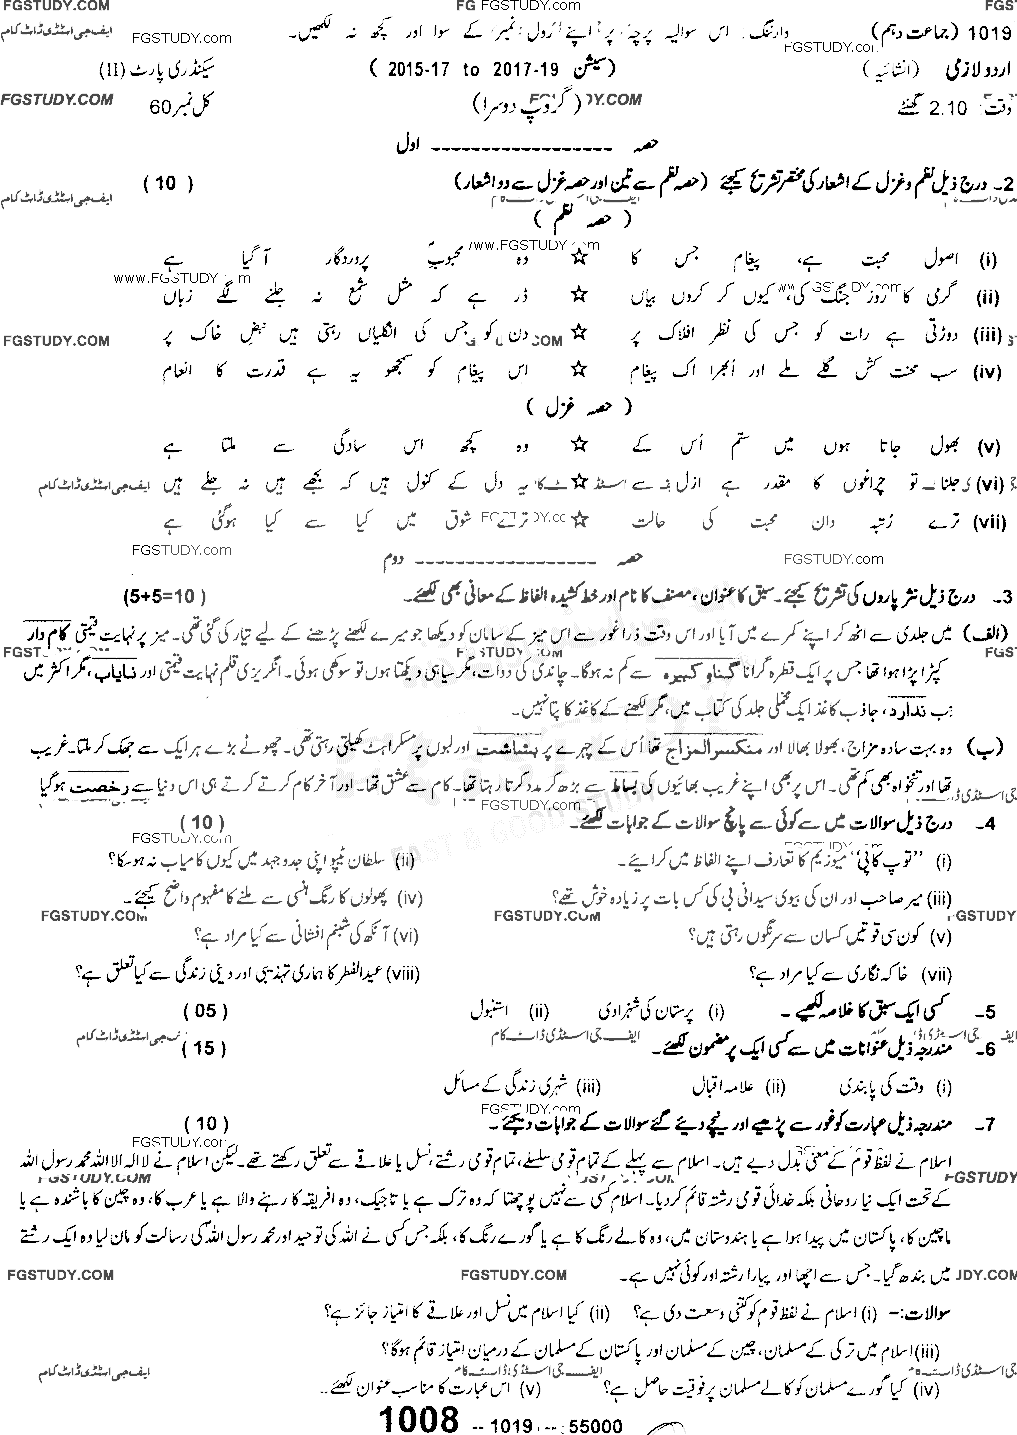 FGSTUDY.COM FG FGSTUDY.COM FGS
1019 (جماعت دہم) وارننگ: اس سوالیہ پرچہ پر اپنے رول نمبر کے سوا اور کچھ نہ لکھیں۔ FGSTUDY.com ایف جی اسٹڈی ڈاٹ کام
اردو لازمی (انشائیہ) (سیشن 2015-17 to 2017-19) سیکنڈری پارٹ (II)
وقت 2.10 گھنٹے (گروپ دوسرا) کل نمبر 60
FGSTUDY.COM
حصہ ------------------ اول
2۔ درج ذیل نظم و غزل کے اشعار کی مختصر تشریح کیجئے (حصہ نظم سے تین اور حصہ غزل سے دو اشعار) (10)
ایف جی اسٹڈی ڈاٹ کام
(حصہ نظم)
www.FGSTUDY.com
(i) اصول محبت ہے، پیغام جس کا ☆ وہ محبوبِ پروردگار آ گیا ہے
(ii) گرمی کا روز جنگ کی، کیوں کر کروں بیاں ☆ ڈر ہے کہ مثل شمع نہ جلنے لگے زباں
(iii) دوڑتی ہے رات کو جس کی نظر افلاک پر ☆ دن کو جس کی انگلیاں رہتی ہیں نبض خاک پر
FGSTUDY.COM
(iv) سب محنت کش گلے ملے اور اُبھرا اک پیغام ☆ اس پیغام کو سمجھو یہ ہے قدرت کا انعام
(حصہ غزل)
(v) بھول جاتا ہوں میں ستم اُس کے ☆ وہ کچھ اس سادگی سے ملتا ہے
(vi) جلنا تو چراغوں کا مقدر ہے ازل سے ☆ یہ دل کے کنول ہیں کہ بجھے ہیں نہ جلے ہیں ایف جی اسٹڈی ڈاٹ کام
(vii) ترے رُتبہ دان محبت کی حالت ☆ ترے شوق میں کیا سے کیا ہو گئی ہے
حصہ ------------------ دوم
FGSTUDY.com FGSTUDY.com
3۔ درج ذیل نثر پاروں کی تشریح کیجئے۔ سبق کا عنوان، مصنف کا نام اور خط کشیدہ الفاظ کے معانی بھی لکھئے۔ (5+5=10)
(الف) میں جلدی سے اٹھ کر اپنے کمرے میں آیا اور اس وقت ذرا غور سے اس میز کے سامان کو دیکھا جو میرے لکھنے پڑھنے کے لیے تیار کی گئی تھی۔ میز پر نہایت قیمتی کام دار
کپڑا پڑا ہوا تھا جس پر ایک قطرہ گرانا گناہ کبیرہ سے کم نہ ہوگا۔ چاندی کی دوات، مگر سیاہی دیکھتا ہوں تو سوکھی ہوئی۔ انگریزی قلم نہایت قیمتی اور نایاب، مگر اکثر میں
نب ندارد، جاذب کاغذ ایک مخملی جلد کی کتاب میں، مگر لکھنے کے کاغذ کا پتا نہیں۔
(ب) وہ بہت سادہ مزاج، بھولا بھالا اور منکسر المزاج تھا اُس کے چہرے پر بشاشت اور لبوں پر مسکراہٹ کھیلتی رہتی تھی۔ چھوٹے بڑے ہر ایک سے جھک کر ملتا۔ غریب
تھا اور تنخواہ بھی کم تھی۔ اس پر بھی اپنے غریب بھائیوں کی بساط سے بڑھ کر مدد کرتا رہتا تھا۔ کام سے عشق تھا۔ اور آخر کام کرتے کرتے ہی اس دنیا سے رخصت ہو گیا
4۔ درج ذیل سوالات میں سے کوئی سے پانچ سوالات کے جوابات لکھئے۔ (10)
FGSTUDY.com
(i) "توپ کاپی" میوزیم کا تعارف اپنے الفاظ میں کرائیے۔ (ii) سلطان ٹیپو اپنی جدوجہد میں کیوں کامیاب نہ ہو سکا؟
(iii) میر صاحب اور ان کی بیوی سیدانی بی کی کس بات پر زیادہ خوش تھے؟ (iv) پھولوں کا رنگ ہنسی سے ملنے کا مفہوم واضح کیجئے۔
FGSTUDY.COM FGSTUDY.COM FGSTUDY
(v) کون سی قوتیں کسان سے سرنگوں رہتی ہیں؟ (vi) آنکھ کی شبنم افشانی سے کیا مراد ہے؟
(vii) خاکہ نگاری سے کیا مراد ہے؟ (viii) عیدالفطر کا ہماری تہذیبی اور دینی زندگی سے کیا تعلق ہے؟
5۔ کسی ایک سبق کا خلاصہ لکھیے۔ (i) پرستان کی شہزادی (ii) استنبول (05)
6۔ مندرجہ ذیل عنوانات میں سے کسی ایک پر مضمون لکھئے۔ (15)
(i) وقت کی پابندی (ii) علامہ اقبال (iii) شہری زندگی کے مسائل
7۔ مندرجہ ذیل عبارت کو غور سے پڑھیے اور نیچے دیئے گئے سوالات کے جوابات دیجئے۔ (10)
اسلام نے لفظ قوم کے معنی بدل دیے ہیں۔ اسلام سے پہلے کے تمام قومی سلسلے، تمام قومی رشتے، نسل یا علاقے سے تعلق رکھتے تھے۔ لیکن اسلام نے لا الہ الا اللہ محمد رسول اللہ
کے تحت ایک نیا روحانی بلکہ خدائی قومی رشتہ قائم کر دیا۔ اسلام کسی سے نہیں پوچھتا کہ وہ ترک ہے یا تاجیک، وہ افریقہ کا رہنے والا ہے یا عرب کا، وہ چین کا باشندہ ہے یا
ماچین کا، پاکستان میں پیدا ہوا ہے یا ہندوستان میں، وہ کالے رنگ کا ہے یا گورے رنگ کا، بلکہ جس کسی نے اللہ کی توحید اور محمد رسول اللہ کی رسالت کو مان لیا وہ ایک رشتے
میں بندھ گیا۔ جس سے اچھا اور پیارا رشتہ اور کوئی نہیں ہے۔
FGSTUDY.COM FGSTUDY.COM
سوالات:- (i) اسلام نے لفظ قوم کو کتنی وسعت دی ہے؟ (ii) کیا اسلام میں نسل اور علاقے کا امتیاز جائز ہے؟
(iii) اسلام میں ترکی کے مسلمان، چین کے مسلمان اور پاکستان کے مسلمان کے درمیان امتیاز قائم ہوگا؟
(iv) کیا گورے مسلمان کو کالے مسلمان پر فوقیت حاصل ہے؟ (v) اس عبارت کا مناسب عنوان لکھئے۔
1008 -- 1019 -- 55000